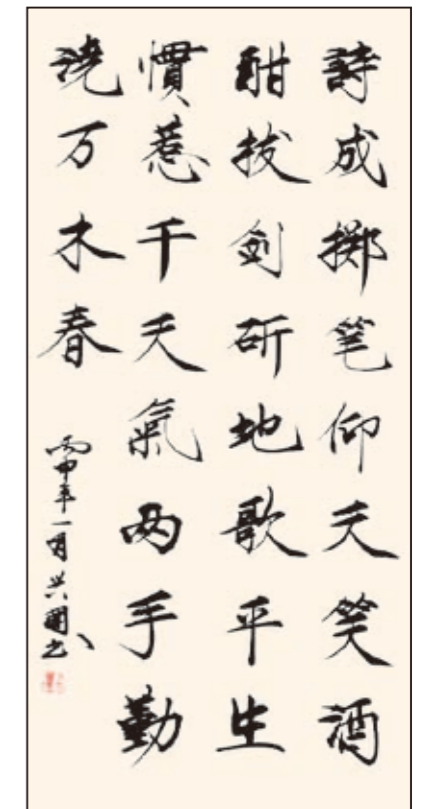 詩成擲笔仰天笑酒
酣拔劍斫地歌平生
慣惹千天氣两手勤
浇万木春
丙申年一月兴国书